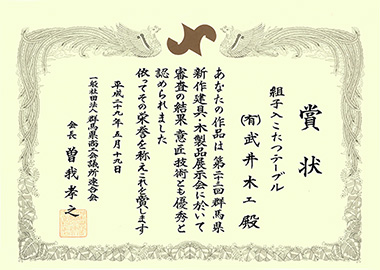 賞状
組子入こたつテーブル
(有)武井木工殿
あなたの作品は第二十三回群馬県
新作建具・木製品展示会に於いて
審査の結果、意匠技術とも優秀と
認められました
依ってその栄誉を称えこれを賞します
平成二十九年五月十九日
一般社団法人群馬県商工会議所連合会
会長 曽我孝之